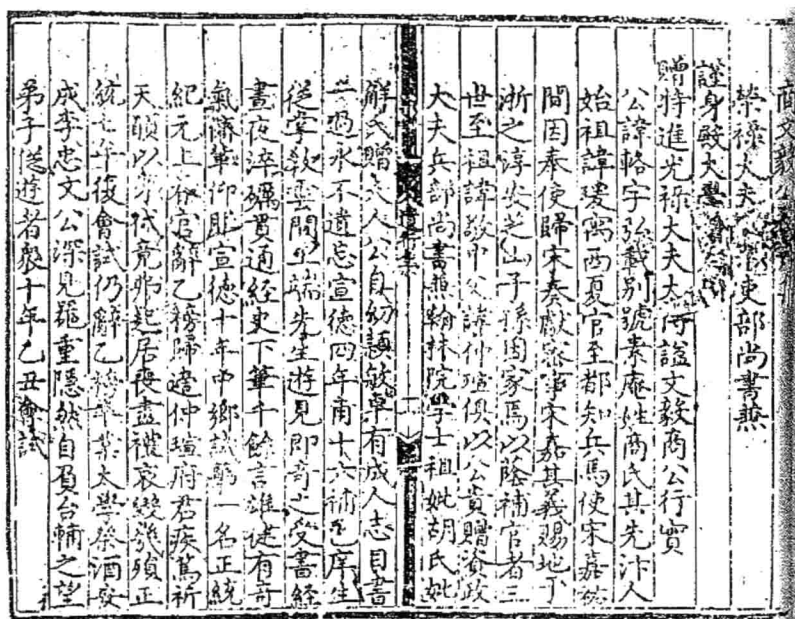 商文毅公
榮祿大夫 吏部尚書兼
謹身殿大學
贈特進光祿大夫太傅謚文毅商公行實
公諱輅字弘載别號素庵姓商氏其先汴人
始祖諱瑗寓西夏官至都知兵馬使宋嘉
間因奉使歸宋奏獻密事宋嘉其義賜地于
浙之淳安芝山子孫因家焉以蔭補官者三
世至祖諱敬中父諱仲瑄俱以公貴贈資政
大夫兵部尚書兼翰林院學士祖妣胡氏妣
解氏贈夫人公自幼頴敏卓有成人志目書
一過永不遺忘宣德四年甫十六補邑庠生
從掌教雲間 端先生遊見即奇之受書經
晝夜淬礪貫通經史下筆千餘言雄健有奇
氣儕輩仰 宣德十年中鄉試第一名正統
紀元上春官辭乙榜歸 仲瑄府君疾篤祈
天願以身代竟弗起居喪盡禮哀 正
統七年復會試仍辭乙榜卒業太學祭酒安
成李忠文公深見器重隱然自負台輔之望
弟子從遊者衆十年乙丑會試